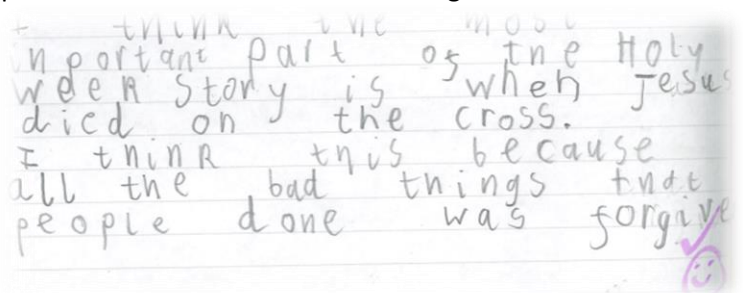 I think the most
nportant part of the Holy
week Story is when Jesus
died on the cross.
I think this because
all the bad things that
people done was forgive